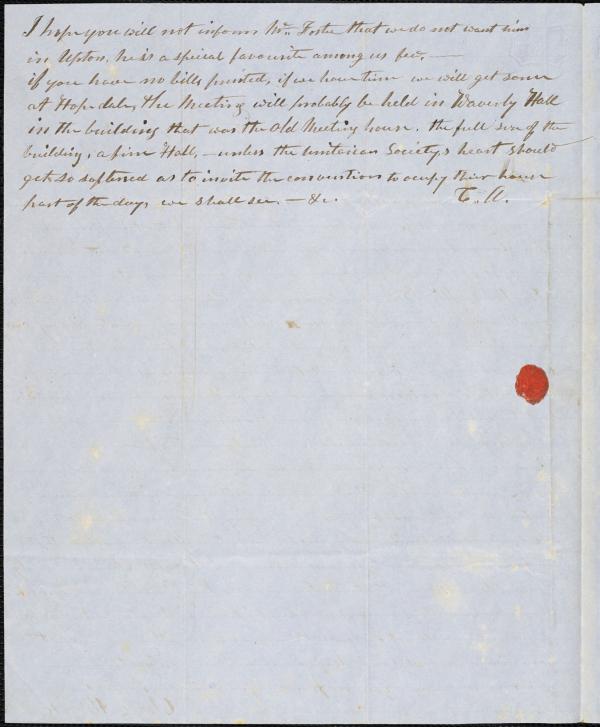 I hope you will not inform Mr. Foster that we do not want him
in Upton, he is a special favourite among us few, —
if you have no bills printed, if we have time we will get some
at Hopedale, the Meeting will probably be held in Waverly Hall
in the building that was the Old Meeting house. the full size of the
building, a fine Hall, — unless the Unitarian Society,s heart should
get so softened as to invite the convention to occupy their house
part of the day, we shall see. — &c. T. A.